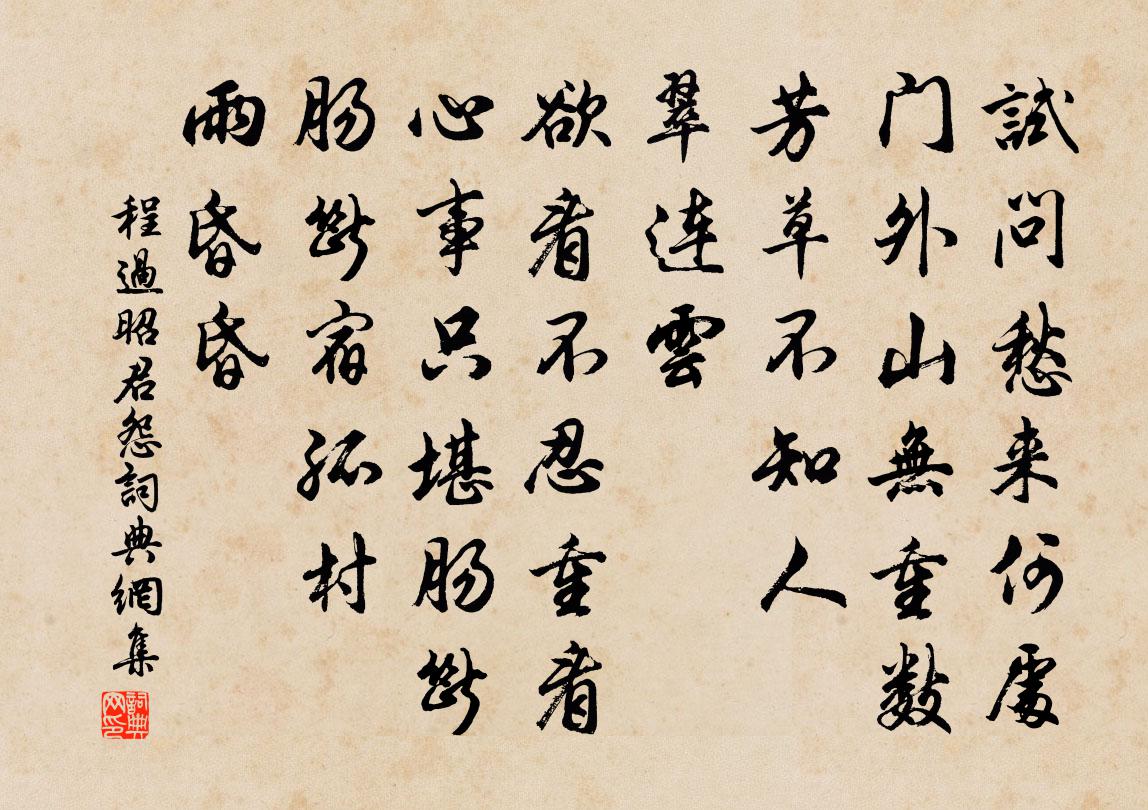 試問愁来何處
门外山無重數
芳草不知人
翠連雲
欲看不忍重看
心事只堪肠斷
肠斷宿孤村
雨昏昏
程過昭君怨詞典網集
詞典网印